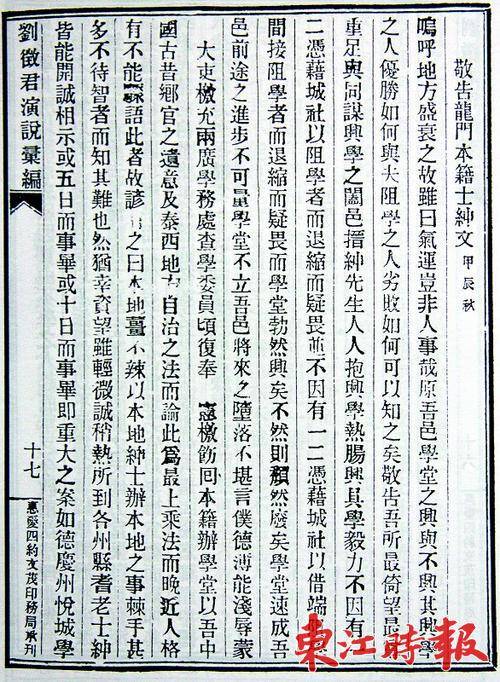 敬告龍門本籍士紳文 甲辰秋
嗚呼地方盛衰之故雖曰氣運豈非人事哉原吾邑學堂之興與不興其興學
之人優勝如何與夫阻學之人劣敗如何可以知之矣敬告吾所最倚望最
重足與同謀興學之闔邑搢紳先生人人抱興學熱腸興具學毅力不因有
二憑藉城社以阻學者而退縮而疑畏並不因有一二憑藉城社以借端
間接阻學者而退縮而疑畏而學堂勃然興矣不然則頹然廢矣學堂速成吾
邑前途之進步不可量學堂不立吾邑將來之墮落不堪言僕德薄能淺辱蒙
大吏檄充兩廣學務處查學委員頃復奉 憲檄飭回本籍辦學堂以吾中
國古昔鄉官之遺意及泰西地方自治之法而論此爲最上乘法而晚近人格
有不能驟語此者故諺之曰本地薑不辣以本地紳士辦本地之事棘手甚
多不待智者而知其難也然猶幸資望雖輕微誠稍熱所到各州縣耆老士紳
皆能開誠相示或五日而事畢或十日而事畢即重大之案如德慶州悅城學
劉徵君演說彙編
十七
惠愛四約文茂印務局承刊
東江時報